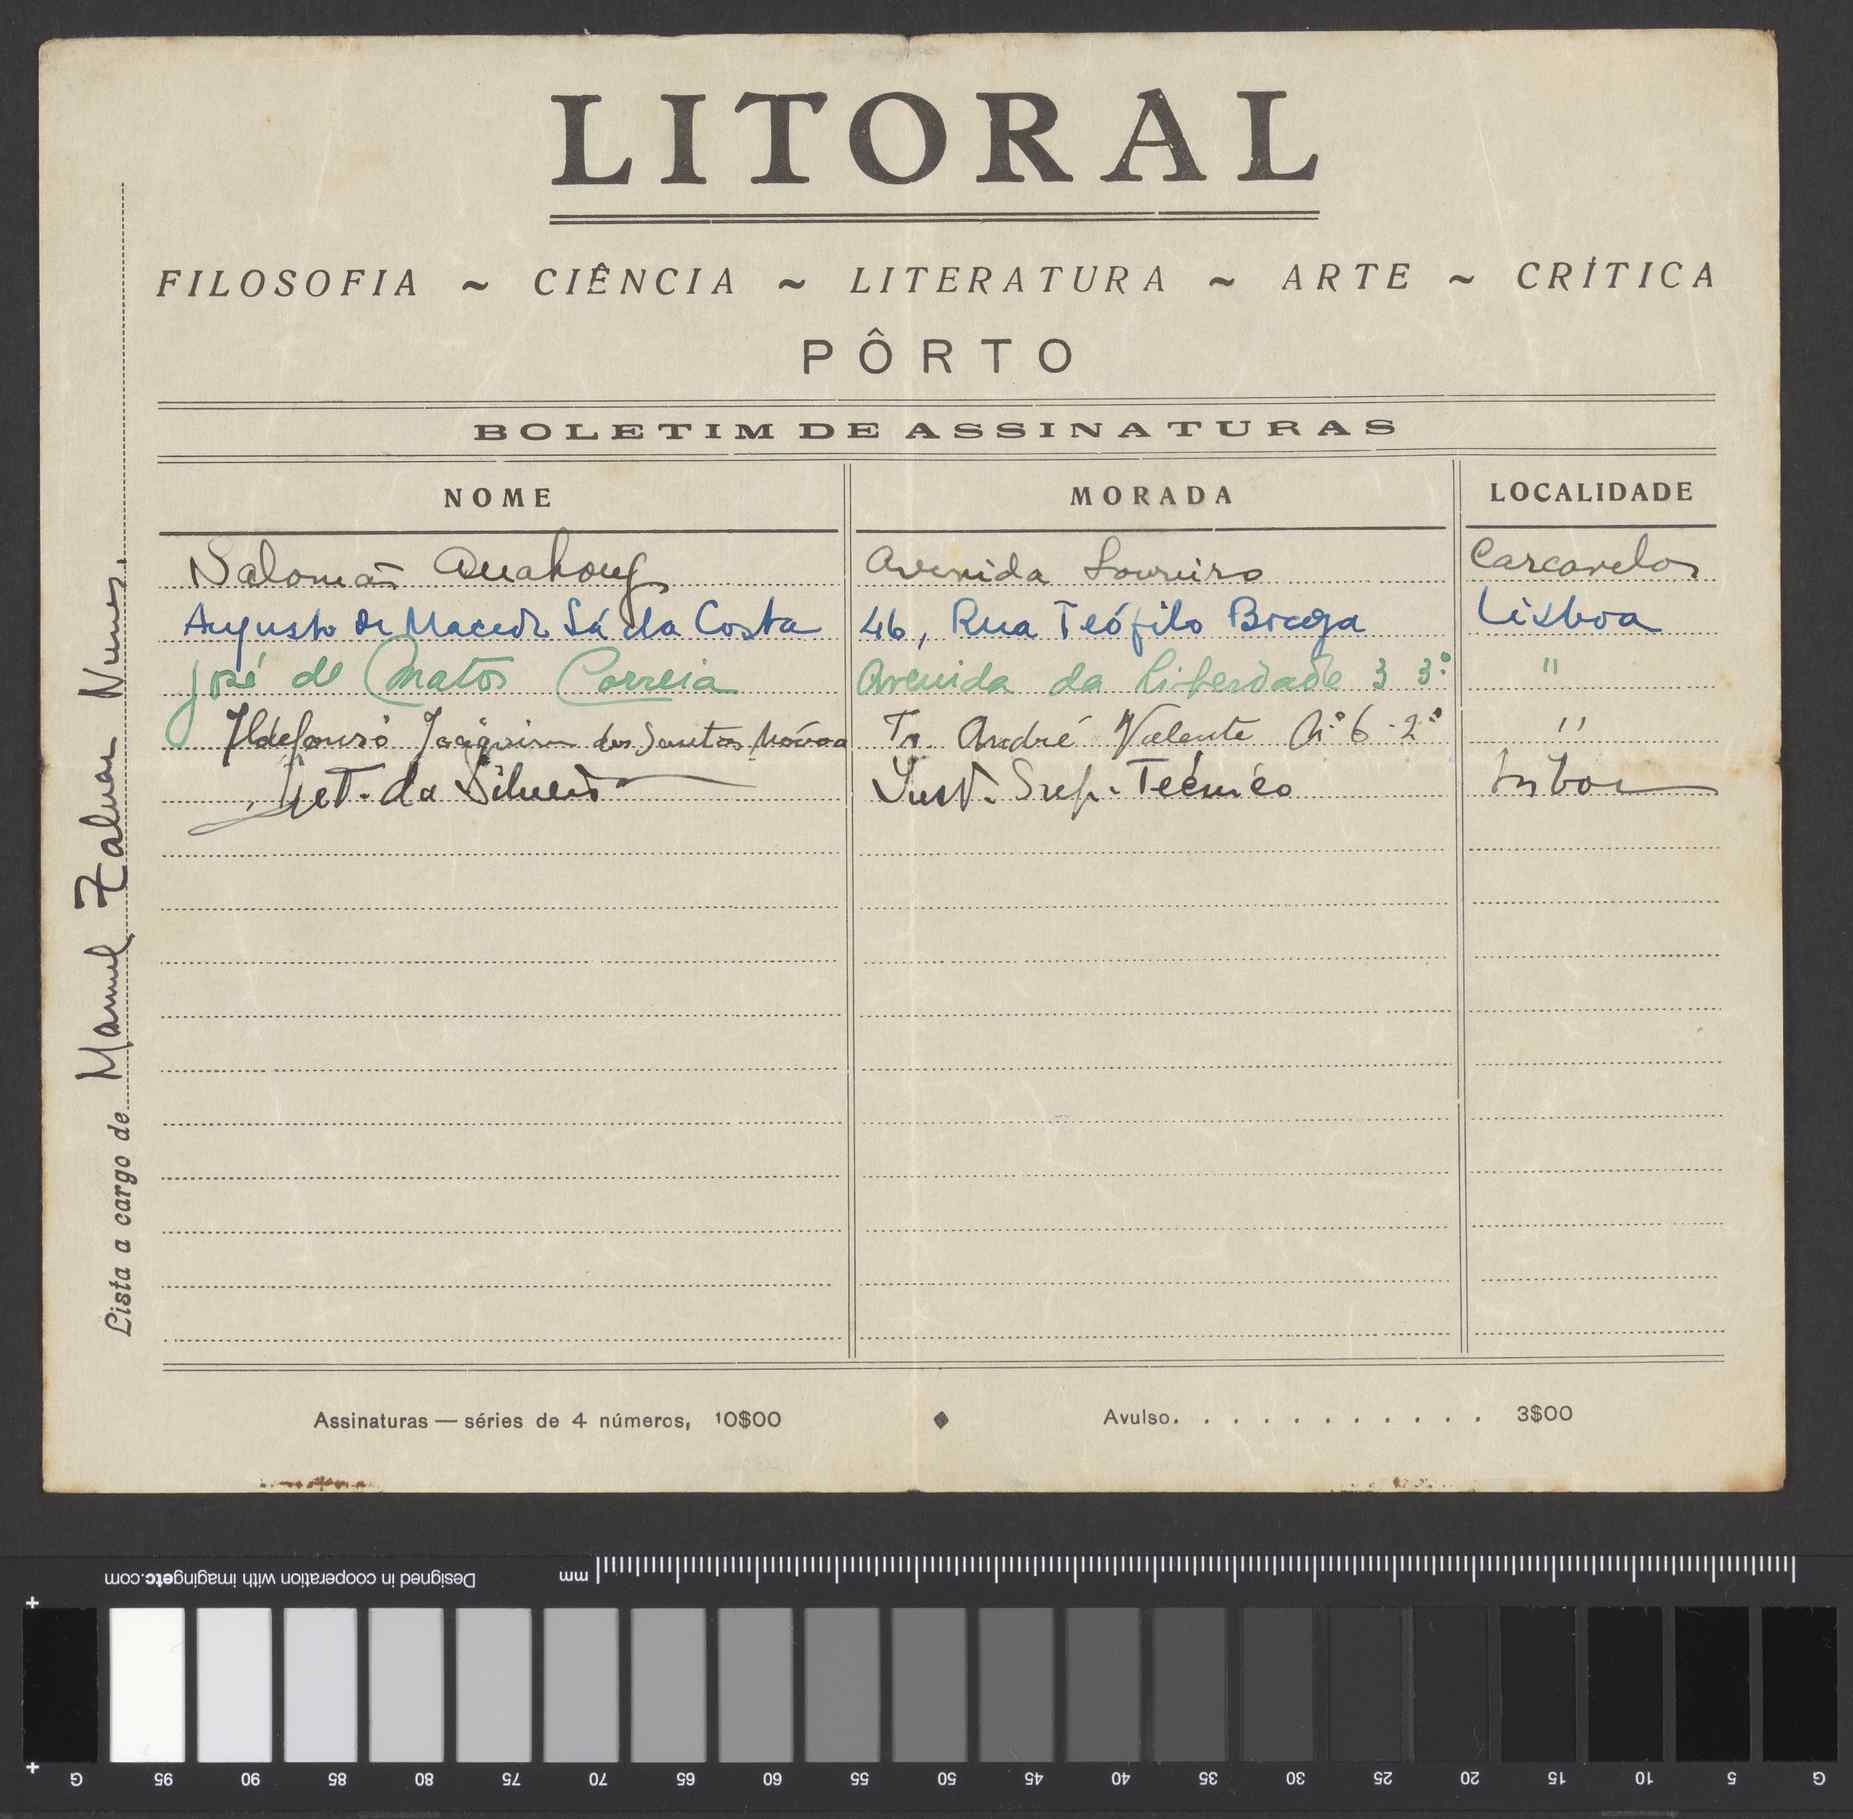 LITORAL
FILOSOFIA ~ CIÊNCIA ~ LITERATURA ~ ARTE ~ CRÍTICA
PÔRTO
BOLETIM DE ASSINATURAS
NOME MORADA LOCALIDADE
Salomão Avenida Loureiro Carcavelos
Augusto de Macedo Sá da Costa 46, Rua Teófilo Braga Lisboa
José de Matos Correia Avenida da Liberdade 3 3º "
Ildefonso Joaquim dos Santos Tr. André Valente Nº 6-2º "
da Silveira Inst. Sup. Técnico Lisboa
Lista a cargo de Manuel Zaluar Nunes.
Assinaturas — séries de 4 números, 10$00 ◆ Avulso. . . . . . . . . . . . 3$00
Designed in cooperation with imagingetc.com mm
G 95 90 85 80 75 70 65 60 55 50 45 40 35 30 25 20 15 10 5 G